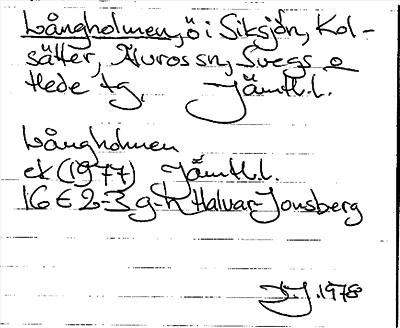 Långholmen, ö i Siksjön, Kol-
sätter, Älvros sn, Svegs o
Hede tg, Jämtl.l.
Långholmen
ek (1977) Jämtl.l.
16 E 2-3 g-h Halvar Jonsberg
1978